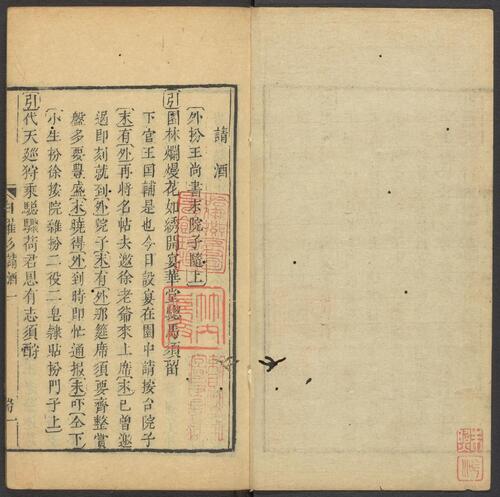 請酒
外扮王尚書末院子隨上
引園林爛熳花如綉開宴華堂驄馬須留
下官王国輔是也今日設宴在園中請按台院子
末有外再将名帖去邀徐老爺來上席末已曾邀
過即刻就到外院子末有外那筵席須要齊整賞
盤多要豊盛末曉得外到時即忙通報末吓仝下
小生扮徐按院雜扮二役二皂隸貼扮門子上
引代天廵狩乘驄驟荷君恩有志須酧
白羅衫請酒一